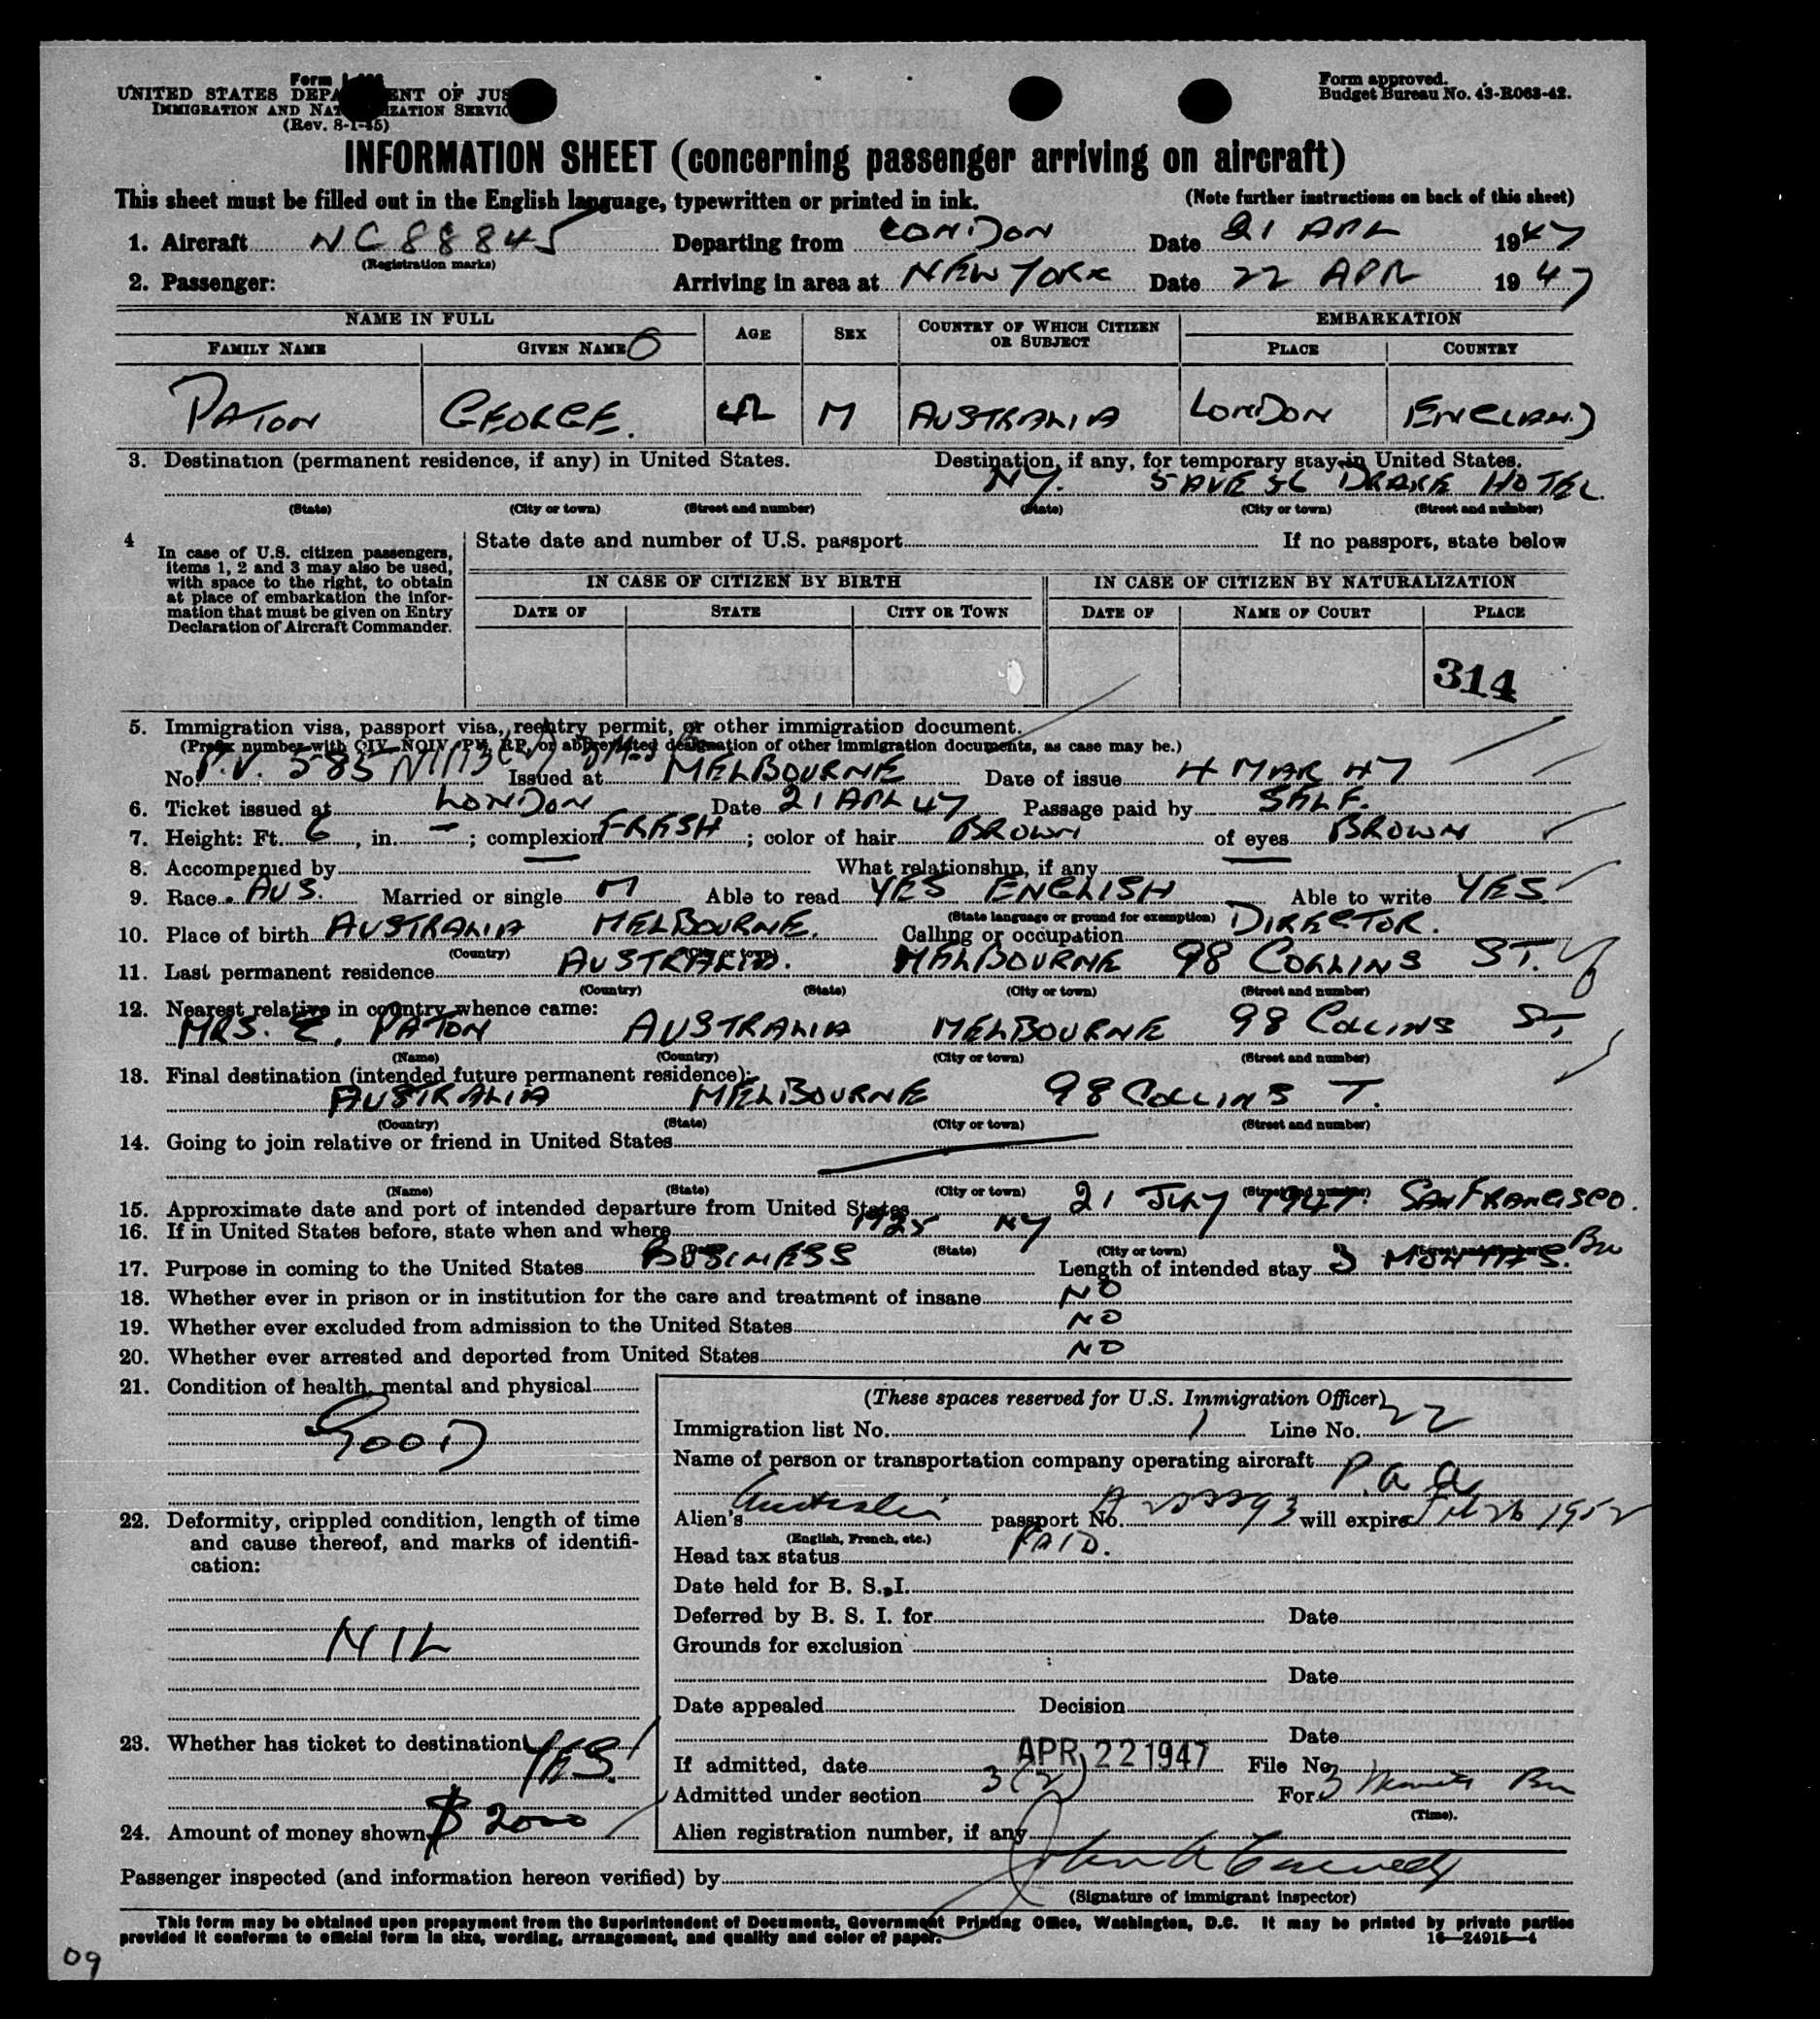 Form
UNITED STATES DEPA ENT OF JUS
IMMIGRATION AND NAT IZATION SERVIC
(Rev. 8-1-45)
Form approved.
Budget Bureau No. 43-R063-42.
INFORMATION SHEET (concerning passenger arriving on aircraft)
This sheet must be filled out in the English language, typewritten or printed in ink. (Note further instructions on back of this sheet)
1. Aircraft NC 88845 Departing from LONDON Date 21 APL 1947
(Registration marks)
2. Passenger: Arriving in area at NEW YORK Date 22 APR 1947
NAME IN FULL AGE SEX COUNTRY OF WHICH CITIZEN OR SUBJECT EMBARKATION
FAMILY NAME GIVEN NAME PLACE COUNTRY
PATON GEORGE. 42 M AUSTRALIA LONDON ENGLAND
3. Destination (permanent residence, if any) in United States. Destination, if any, for temporary stay in United States.
NY. DRAKE HOTEL
(State) (City or town) (Street and number) (State) (City or town) (Street and number)
4 In case of U.S. citizen passengers, items 1, 2 and 3 may also be used, with space to the right, to obtain at place of embarkation the information that must be given on Entry Declaration of Aircraft Commander.
State date and number of U.S. passport If no passport, state below
IN CASE OF CITIZEN BY BIRTH IN CASE OF CITIZEN BY NATURALIZATION
DATE OF STATE CITY OR TOWN DATE OF NAME OF COURT PLACE
314
5. Immigration visa, passport visa, reentry permit, or other immigration document.
(Prefix number with QIV, NQIV, PV, RP, or abbreviated designation of other immigration documents, as case may be.)
No. P.V. 585 Issued at MELBOURNE Date of issue 4 MAR 47
6. Ticket issued at LONDON Date 21 APL 47 Passage paid by SELF.
7. Height: Ft. 6, in. –; complexion FRESH; color of hair BROWN of eyes BROWN
8. Accompenied by — What relationship, if any —
9. Race AUS. Married or single M Able to read YES ENGLISH Able to write YES.
(State language or ground for exemption)
10. Place of birth AUSTRALIA MELBOURNE. Calling or occupation DIRECTOR.
(Country) (City or town)
11. Last permanent residence AUSTRALIA. MELBOURNE 98 COLLINS ST.
(Country) (State) (City or town) (Street and number)
12. Nearest relative in country whence came:
MRS. E. PATON AUSTRALIA MELBOURNE 98 COLLINS ST
(Name) (Country) (City or town) (Street and number)
13. Final destination (intended future permanent residence):
AUSTRALIA MELBOURNE 98 COLLINS T.
(Country) (State) (City or town) (Street and number)
14. Going to join relative or friend in United States
(Name) (State) (City or town) (Street and number)
15. Approximate date and port of intended departure from United States 21 JULY 1947. SAN FRANCISCO.
16. If in United States before, state when and where 1925 NY
(State) (City or town) (Street and number)
17. Purpose in coming to the United States BUSINESS Length of intended stay 3 MONTHS. Bu
18. Whether ever in prison or in institution for the care and treatment of insane NO
19. Whether ever excluded from admission to the United States NO
20. Whether ever arrested and deported from United States NO
21. Condition of health, mental and physical
GOOD
22. Deformity, crippled condition, length of time and cause thereof, and marks of identification:
NIL
23. Whether has ticket to destination YES.
24. Amount of money shown $ 2000
(These spaces reserved for U.S. Immigration Officer)
Immigration list No. 1 Line No. 22
Name of person or transportation company operating aircraft P.a.a
Alien's Australia passport No. will expire Feb 26 1952
(English, French, etc.)
Head tax status PAID.
Date held for B. S. I.
Deferred by B. S. I. for Date
Grounds for exclusion
Date
Date appealed Decision
Date
If admitted, date APR 22 1947 File No.
Admitted under section 3(2) For 3 months Bu
(Time).
Alien registration number, if any
Passenger inspected (and information hereon verified) by
(Signature of immigrant inspector)
This form may be obtained upon prepayment from the Superintendent of Documents, Government Printing Office, Washington, D.C. It may be printed by private parties
provided it conforms to official form in size, wording, arrangement, and quality and color of paper. 16—24915-4
09